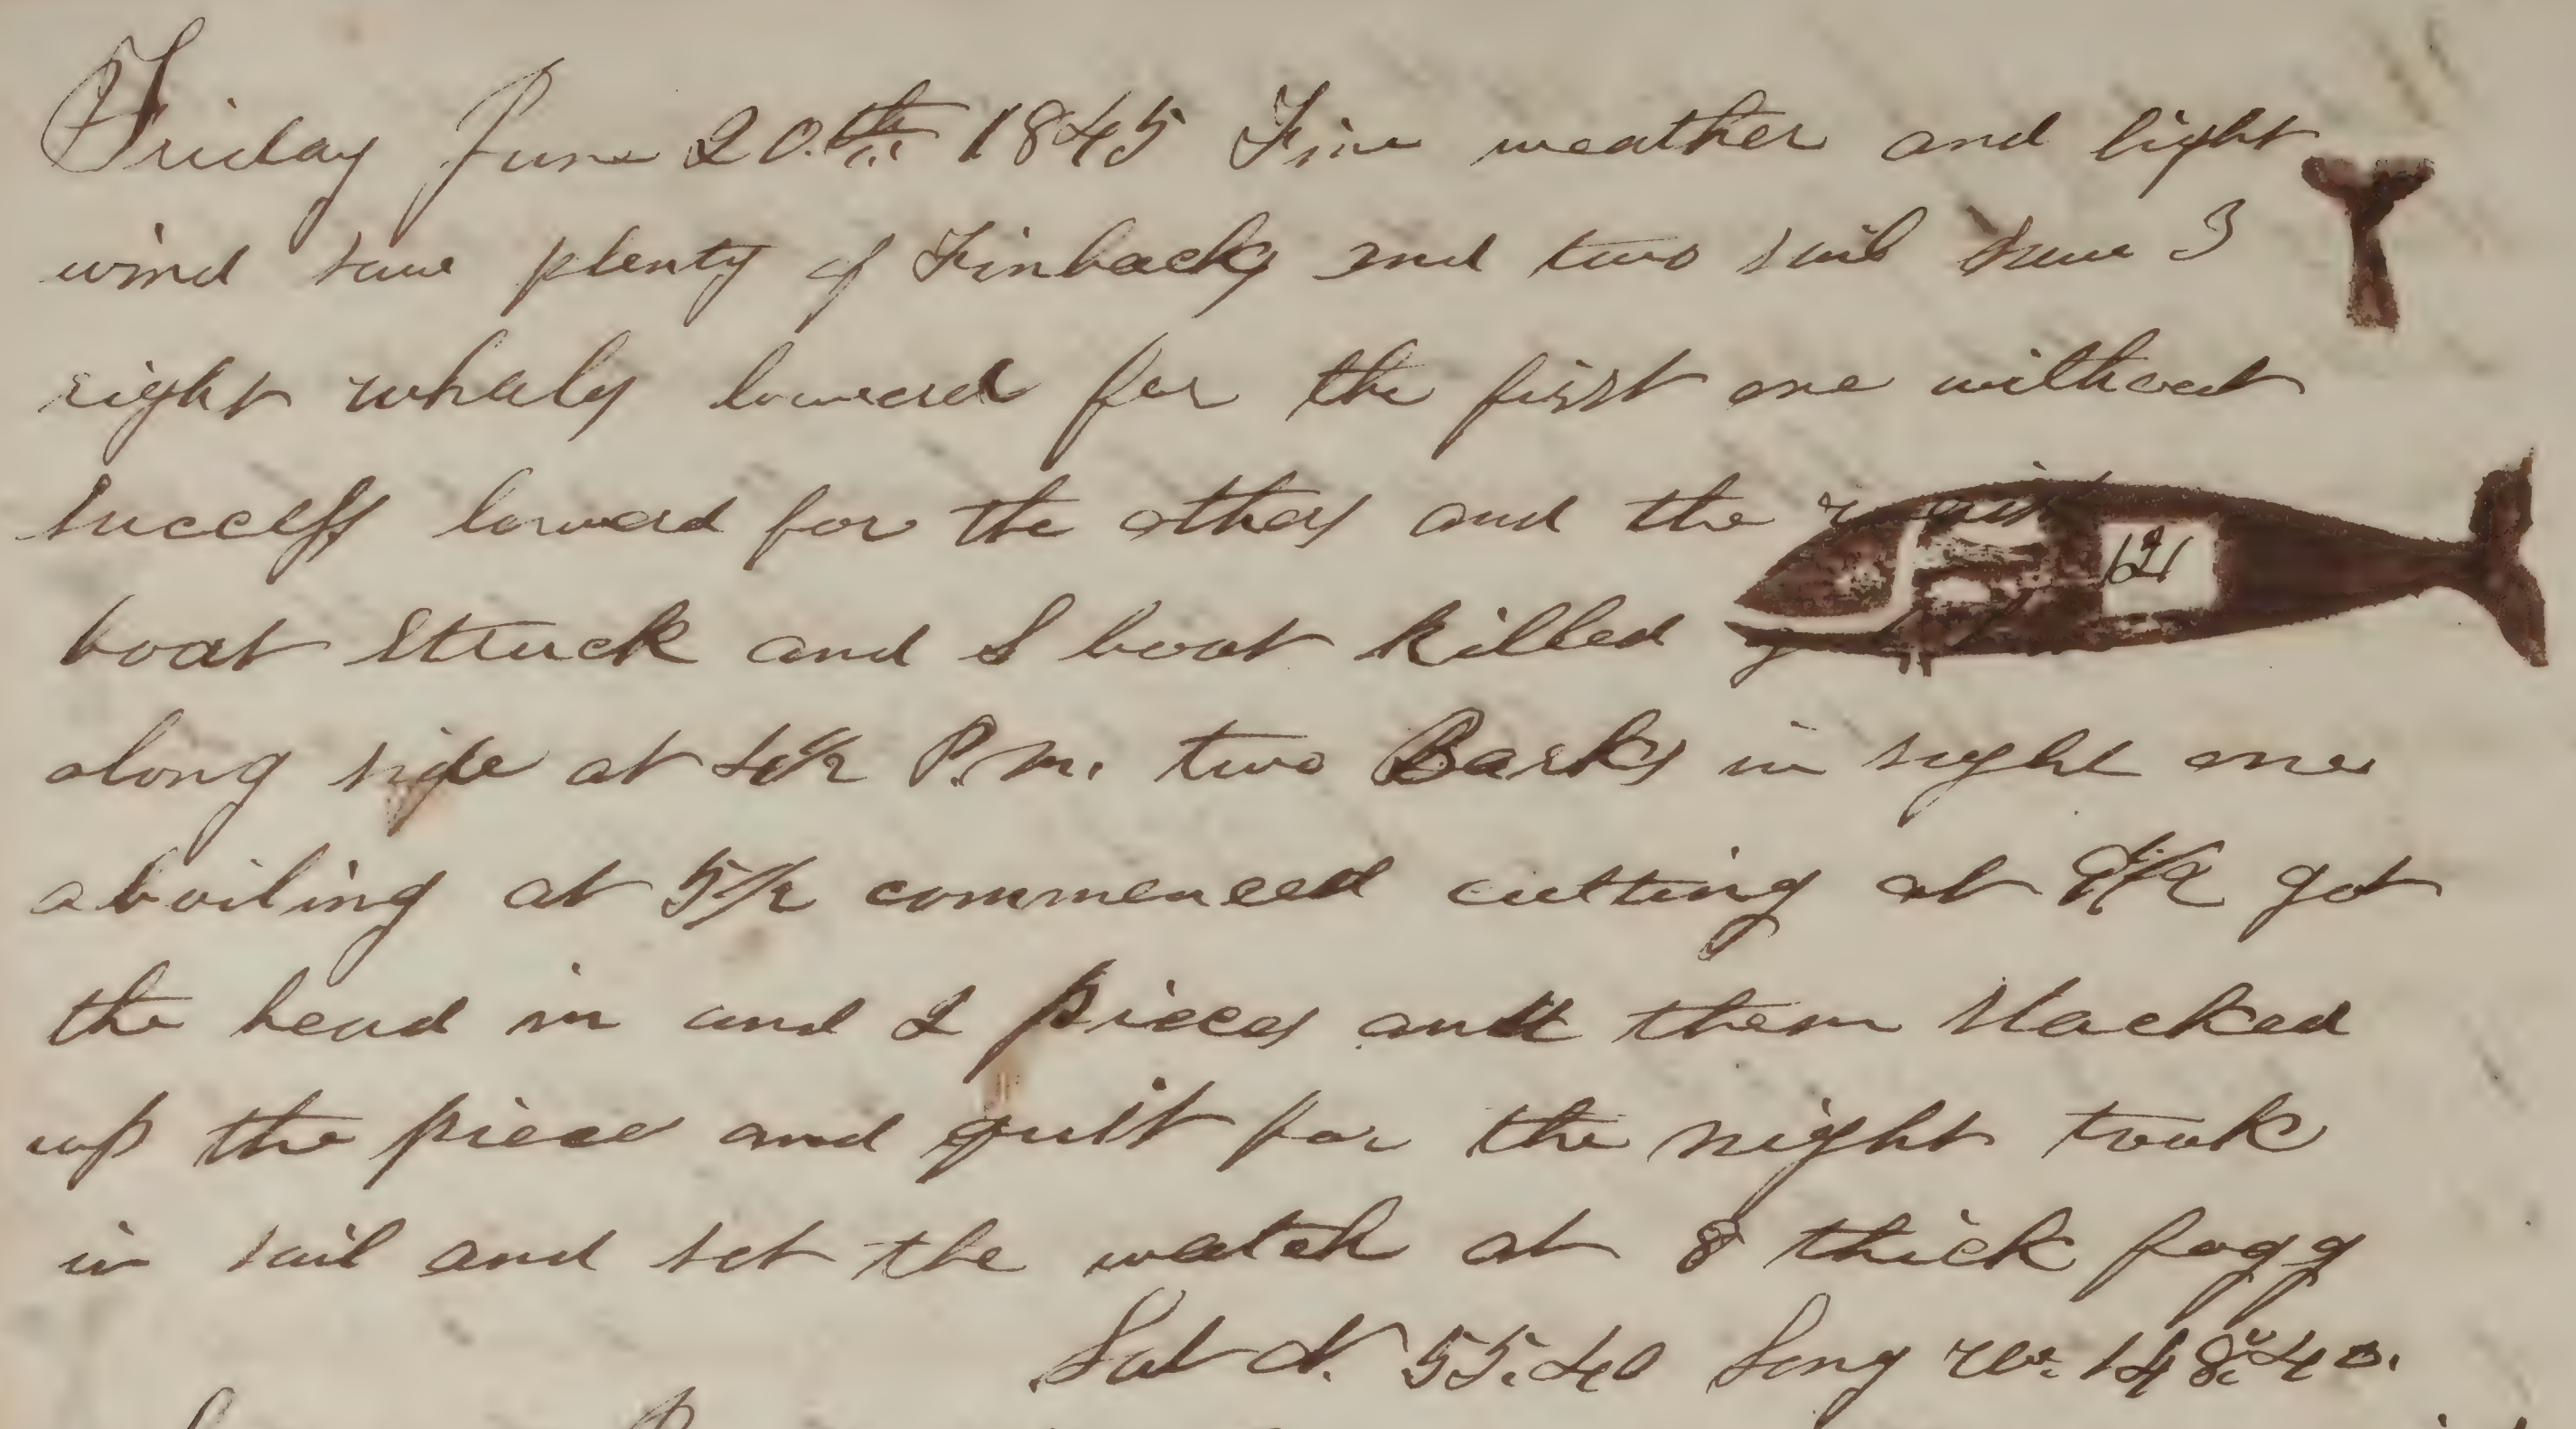 Friday June 20.th 1845 Fine weather and light
wind saw plenty of Finbacks and two sail saw 3
right whales lowered for the first one without
success lowered for the others and the
boat struck and S boat killed
along side at 4 1/2 P.M. two Barks in sight one
a boiling at 5 1/2 commenced cutting at got
the head in and 2 pieces and them slacked
up the piece and quit for the night took
in sail and set the watch at 8 thick fogg
Lat N. 55.40 Long W. 148.40.